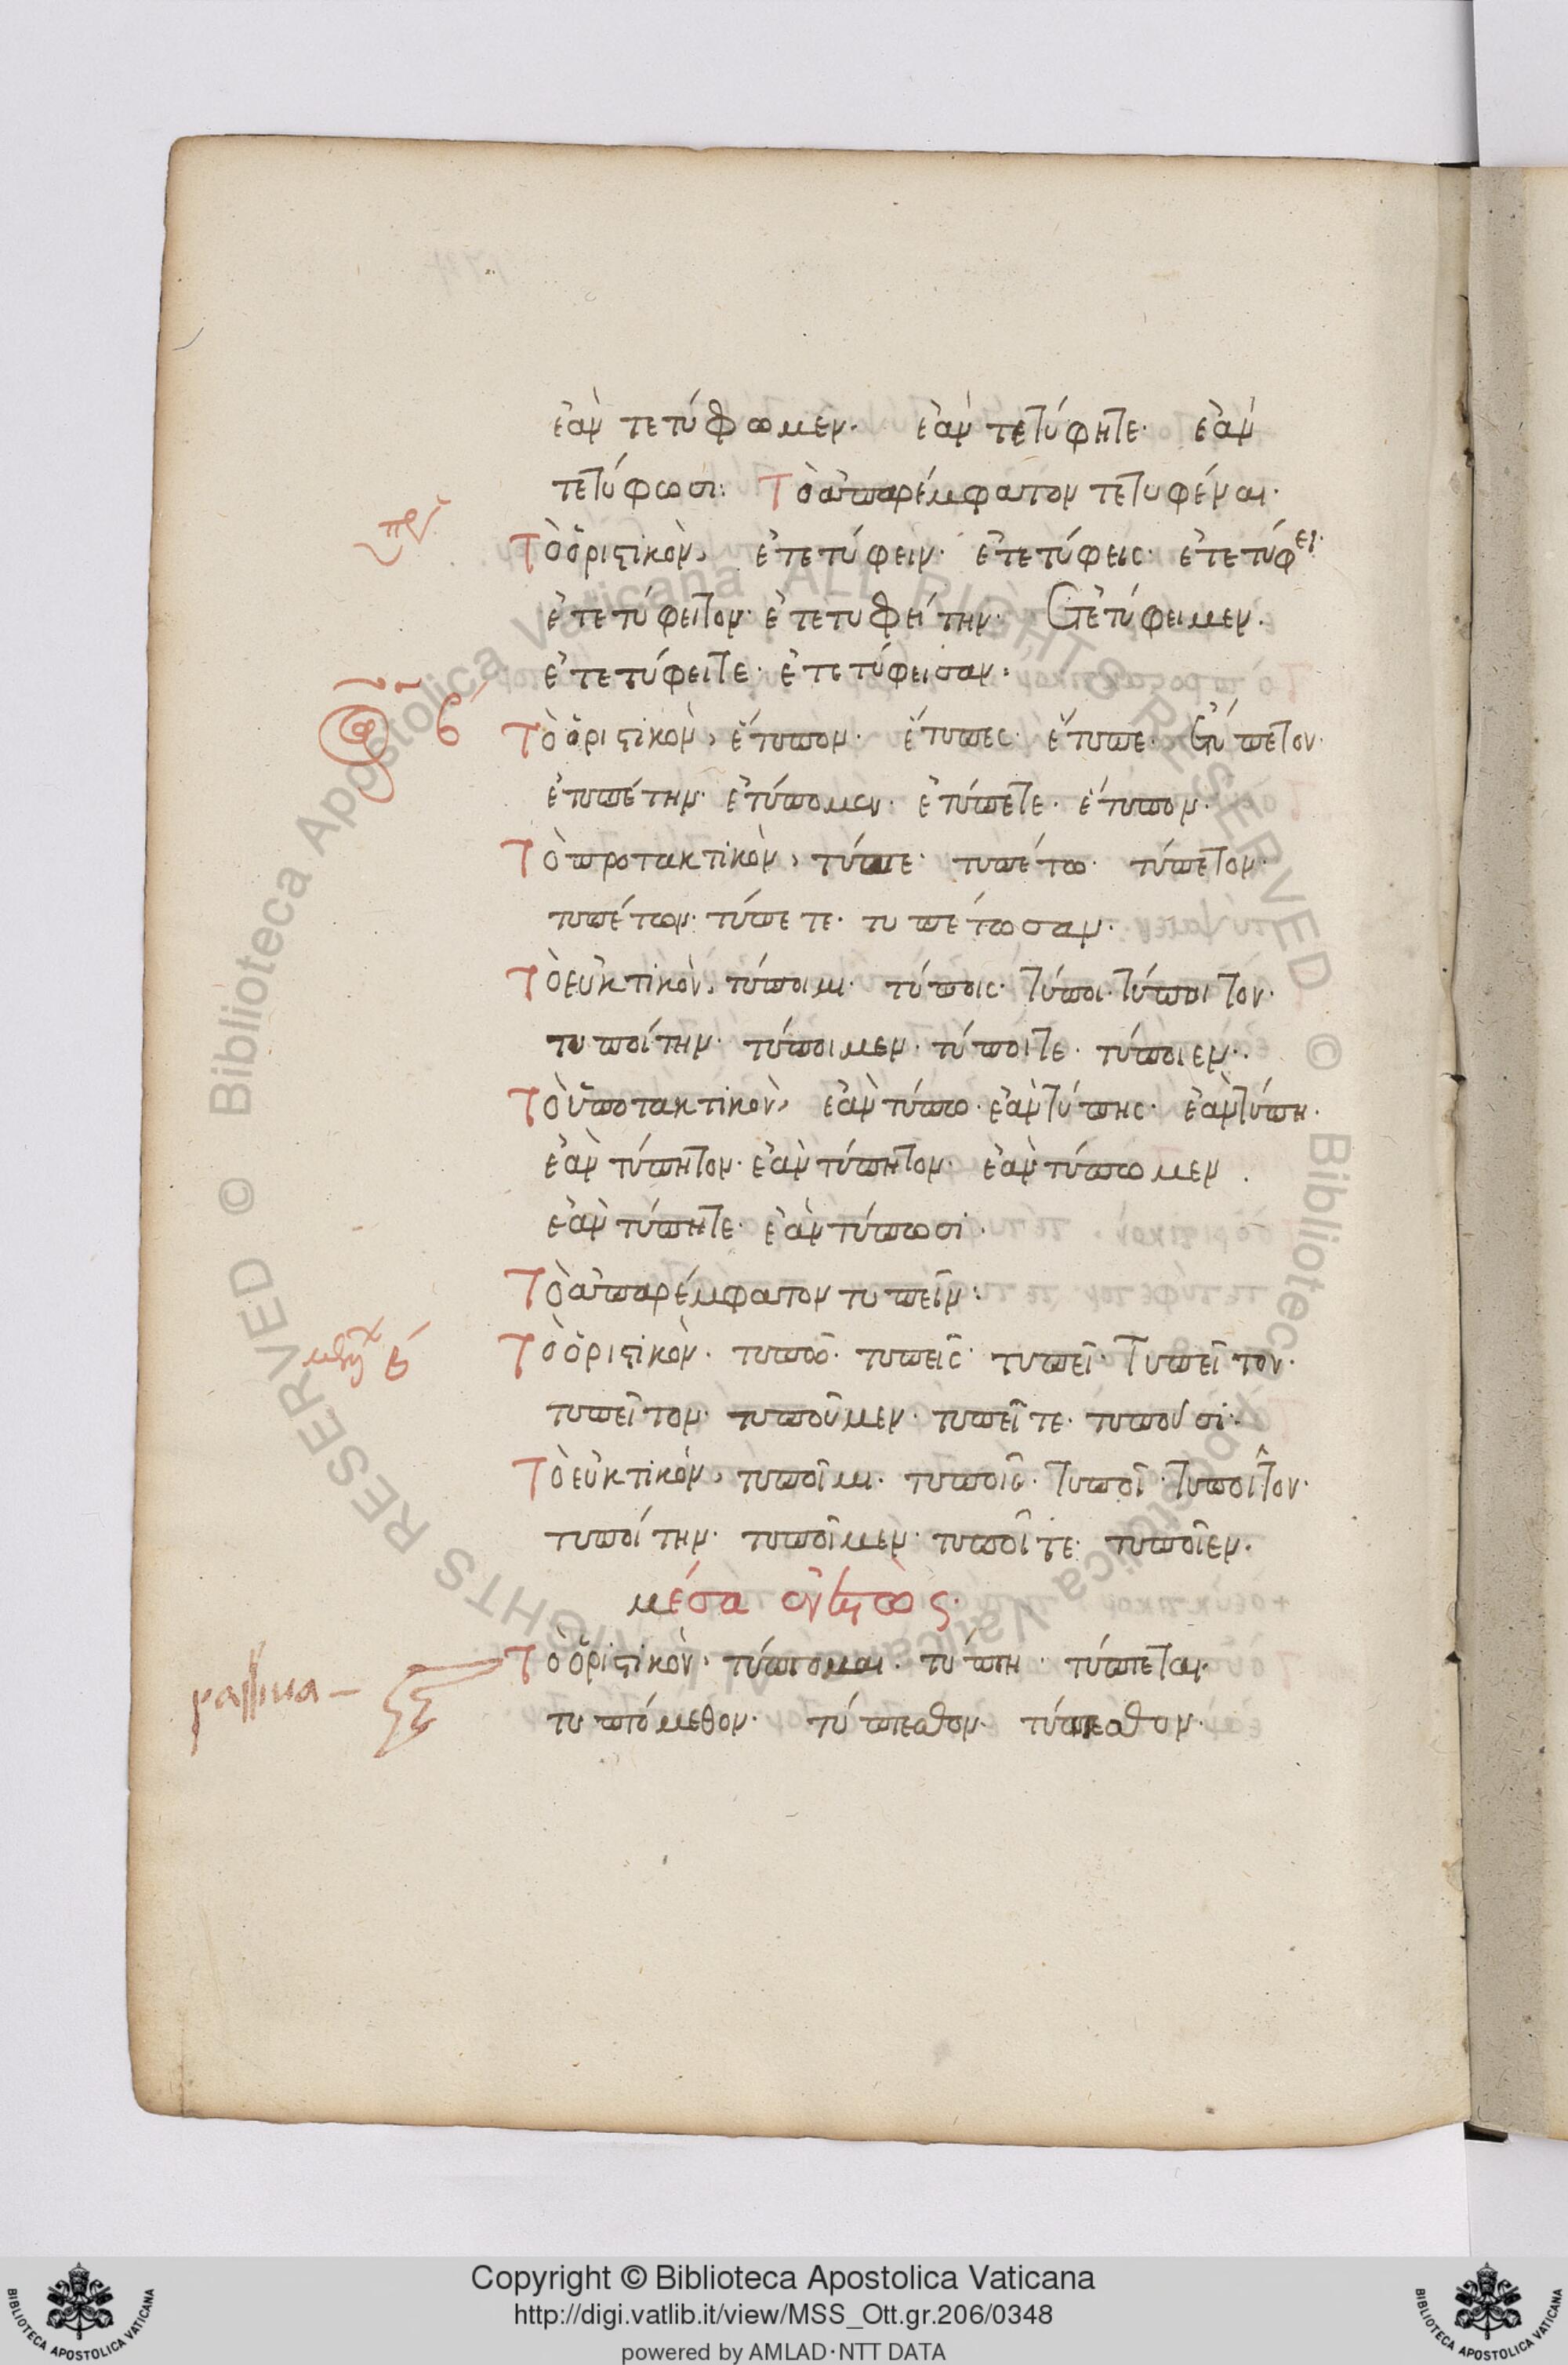 ἐὰν τετύφωμεν· ἐὰν τετύφητε· ἐὰν
τετύφωσι: Τὸ ἀπαρέμφατον τετυφέναι·
Τὸ ὁριστικὸν, ἐτετύφειν· ἐτετύφεις· ἐτετύφει·
ἐτετύφειτον· ἐτετυφείτην· ἐτετύφειμεν.
ἐτετύφειτε· ἐτετύφεισαν:
β´ Τὸ ὁριστικὸν, ἔτυπον· ἔτυπες· ἔτυπε· ἐτύπετον·
ἐτυπέτην· ἐτύπομεν· ἐτύπετε· ἔτυπον·
Τὸ προτακτικὸν, τύπε· τυπέτω· τύπετον·
τυπέτων· τύπετε· τυπέτωσαν·
Τὸ εὐκτικὸν, τύποιμι· τύποις· τύποι· τύποιτον·
τυποίτην· τύποιμεν· τύποιτε· τύποιεν·
Τὸ ὑποτακτικὸν, ἐὰν τύπω· ἐὰν τύπης· ἐὰν τύπη·
ἐὰν τύπητον· ἐὰν τύπητον· ἐὰν τύπωμεν.
ἐὰν τύπητε· ἐὰν τύπωσι·
Τὸ ἀπαρέμφατον τυπεῖν:
β´ Τὸ ὁριστικὸν· τυπῶ· τυπεῖς· τυπεῖ· τυπεῖτον·
τυπεῖτον· τυποῦμεν· τυπεῖτε· τυποῦσι·
Τὸ εὐκτικὸν, τυποῖμι· τυποῖς· τυποῖ· τυποῖτον·
τυποίτην· τυποῖμεν· τυποῖτε· τυποῖεν·
μέσα
passiua – Τὸ ὁριστικὸν, τύπτομαι· τύπτη· τύπτεται·
τυπτόμεθον· τύπτεσθον· τύπτεσθον·
© Biblioteca Apostolica Vaticana ALL RIGHTS RESERVED © Biblioteca Apostolica Vaticana ALL RIGHTS RESERVED
Copyright © Biblioteca Apostolica Vaticana
http://digi.vatlib.it/view/MSS_Ott.gr.206/0348
powered by AMLAD·NTT DATA
BIBLIOTECA APOSTOLICA VATICANA
BIBLIOTECA APOSTOLICA VATICANA